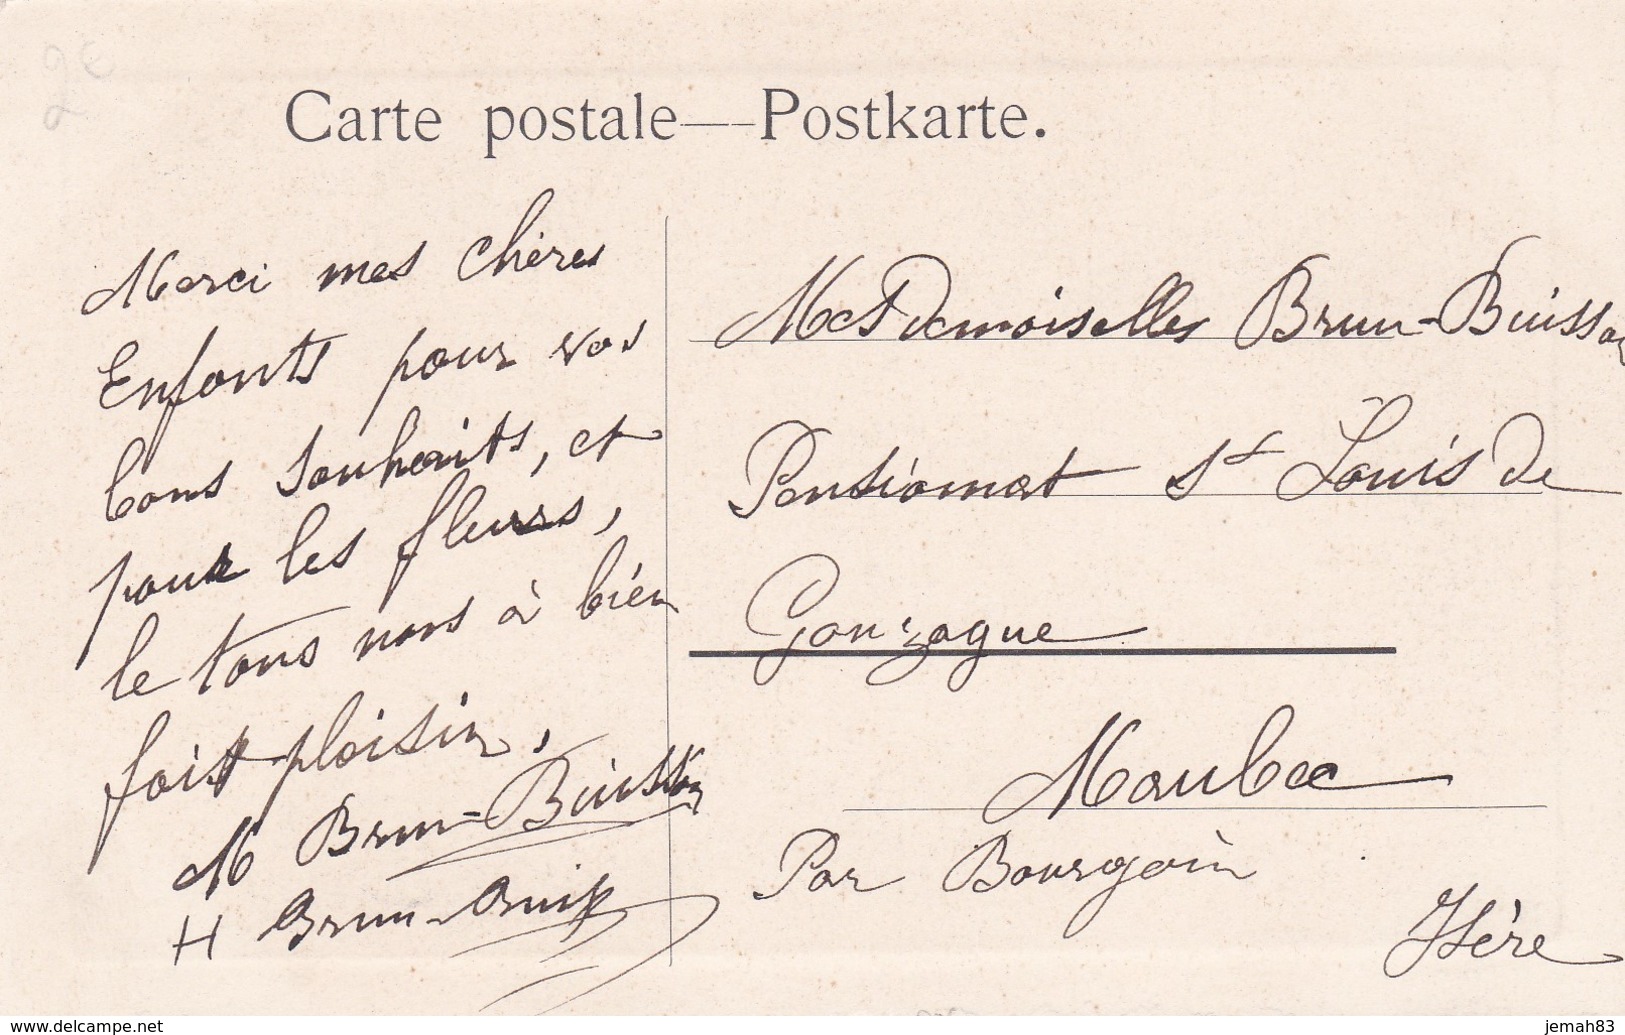 Carte postale—Postkarte.
Merci mes chères
Enfants pour vos
bons souhaits, et
pour les fleurs,
le tous nous à bién
fait plaisir,
M Brun-Buisson
H Brun-Buis
MesDemoiselles Brun-Buisson
Pensionnat St Louis De
Gonzague
Maubec
Par Bourgoin
Isère
www.delcampe.net
jemah83